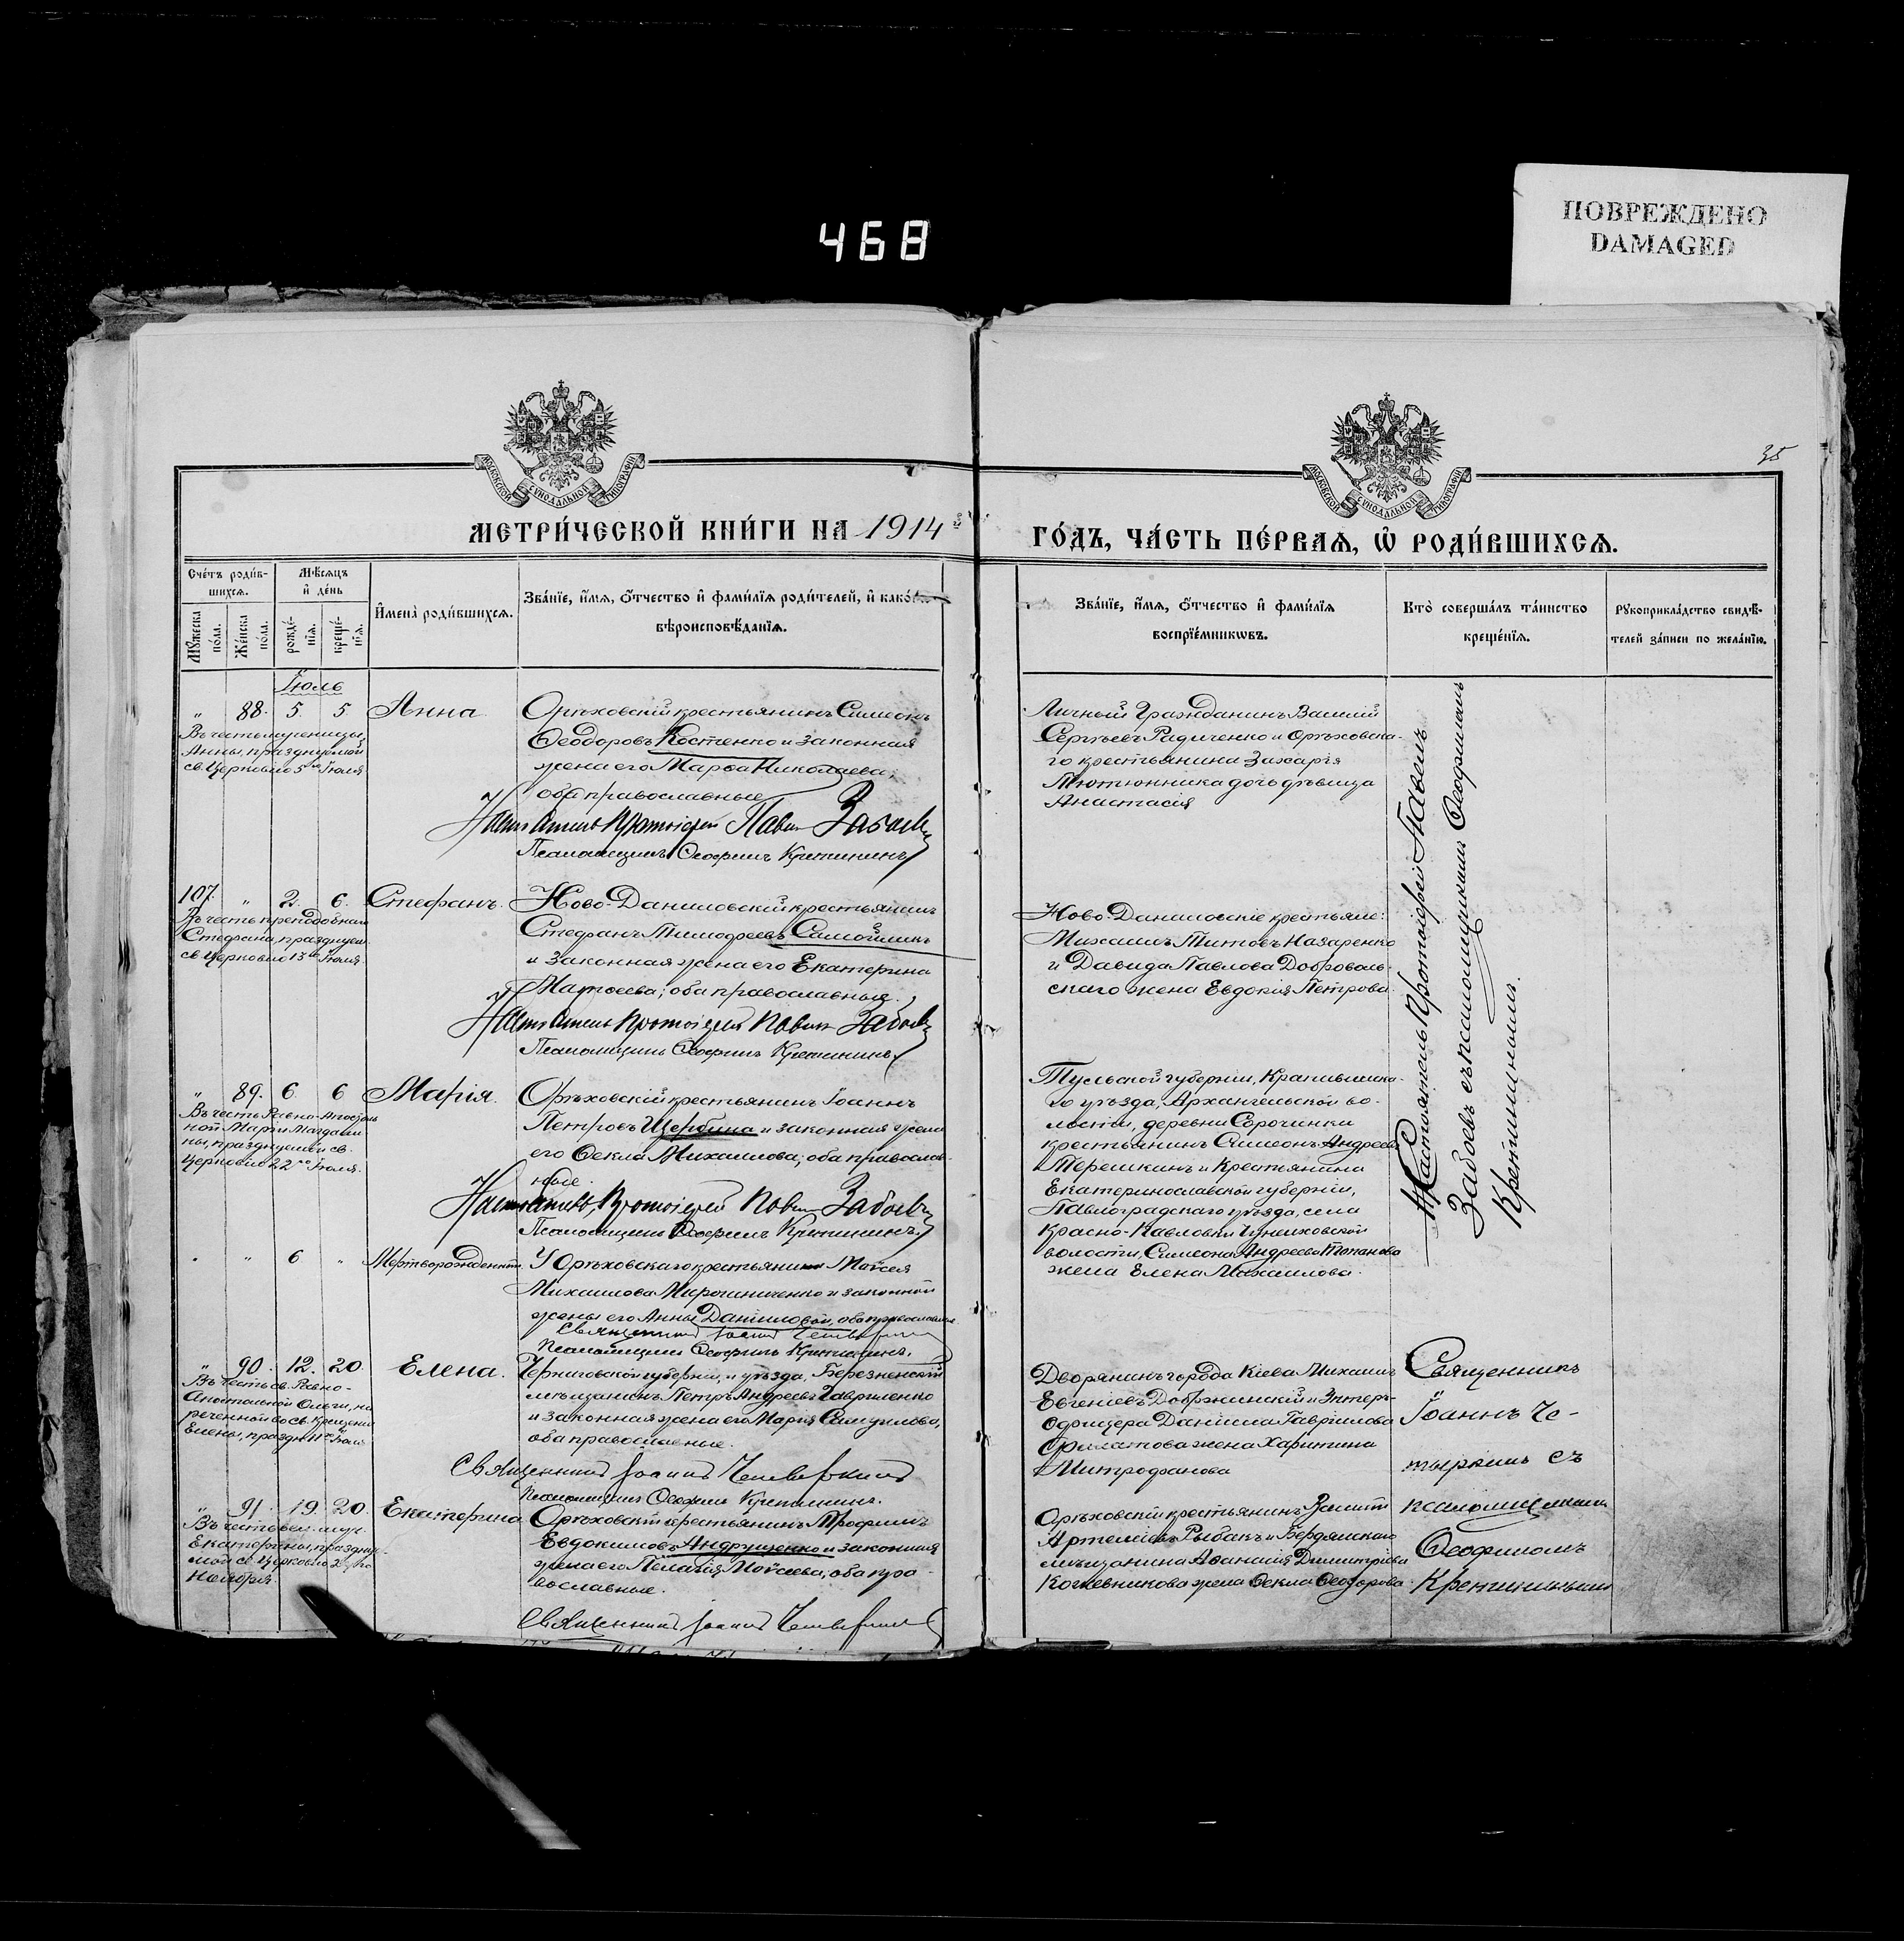 468
ПОВРЕЖДЕНО
DAMAGED
35
МОСКОВСКОЙ СѴНОДАЛЬНОЙ ТИПОГРАФІИ
МОСКОВСКОЙ СѴНОДАЛЬНОЙ ТИПОГРАФІИ
МЕТРИ́ЧЕСКОЙ КНИ́ГИ НА 1914й
ГО́ДЪ, ЧА́СТЬ ПЕ́РВАѦ, Ѡ РОДИ́ВШИХСѦ.
Сче́тъ роди́в-
шихсѧ.
Мꙋжеска по́ла.
Же́нска по́ла.
Мѣ́сѧцъ
и де́нь
рожде́-
нїѧ.
креще́-
нїѧ.
Имена̀ роди́вшихсѧ.
Зва́нїе, и́мѧ, ѻ́тчество и фами́лїѧ роди́телей, и како́гѡ
вѣроисповѣ́данїѧ.
Зва́нїе, и́мѧ, ѻ́тчество и фами́лїѧ
воспрїе́мникѡвъ.
Кто̀ соверша́лъ та́инство
креще́нїѧ.
Рꙋкоприкла́дство свидѣ́-
телей за́писи по жела́нїю.
Іюль
" 88. 5. 5. Анна.
Въ честь мученицы
Анны, празднуемой
св. Церковію 5го Іюля
Орѣховскій крестьянинъ Симеонъ
Ѳеодоровъ Костенко и законная
жена его Марѳа Николаева,
оба православные
Настоятель Протоіерей Павелъ Забоевъ
Псаломщикъ Ѳеофилъ Крепининъ
Личный Гражданинъ Василій
Сергѣевъ Радиченко и Орѣховска-
го крестьянина Захарія
Тютюнника дочь дѣвица
Анастасія
107. " 2. 6. Стефанъ.
Въ честь преподобнаго
Стефана, празднуем.
св. Церковію 13го Іюля.
Ново-Даниловскій крестьянинъ
Стефанъ Тимофеевъ Самойликъ
и законная жена его Екатерина
Матѳеева; оба православные.
Настоятель Протоіерей Павелъ Забоевъ
Псаломщикъ Ѳеофилъ Крепининъ.
Ново-Даниловскіе крестьяне:
Михаилъ Титовъ Назаренко
и Давида Павлова Доброволь-
скаго жена Евдокія Петрова.
" 89. 6. 6 Марія.
Въ честь Равно-Апостоль
ной Маріи Магдали
ны, празднуемой св.
Церковію 22го Іюля.
Орѣховскій крестьянинъ Іоаннъ
Петровъ Щербина и законная жена
его Ѳекла Михаилова; оба православ-
ные.
Настоятель, Протоіерей Павелъ Забоевъ
Псаломщикъ Ѳеофилъ Крепининъ.
Тульской губерніи, Крапивинска-
го уѣзда, Архангельской во-
лости, деревни Сорочинки
крестьянинъ Симеонъ Андреевъ
Терешкинъ и крестьянина
Екатеринославской губерніи,
Павлоградскаго уѣзда, села
Красно-Павловки
волости, Симеона Андреева
жена Елена Михаилова.
" " 6 " Мертворожденный.
У Орѣховскаго крестьянина Моисея
Михаилова Мирошниченко и законной
жены его Анны Даніиловой, оба православные
Священникъ Іоаннъ Четыркинъ
Псаломщикъ Ѳеофилъ Крепининъ.
Настоятель Протоіерей Павелъ
Забоевъ съ псаломщикомъ Ѳеофиломъ
Крепининымъ.
" 90. 12. 20. Елена.
Въ честь св. Равно-
Апостольной Ольги, на
реченной во св. крещеніи
Елены, праздн. 11го Іюля
Черниговской губерніи, и уѣзда, Березненскій
мѣщанинъ Петръ Андреевъ Гавриленко
и законная жена его Марія Самуилова,
оба православные.
Священникъ Іоаннъ Четыркинъ
Псаломщикъ Ѳеофилъ Крепининъ.
Дворянинъ города Кіева Михаилъ
Евгеніевъ Добржинскій и Унтеръ-
Офицера Даніила Гаврилова
Филатова жена Харитина
Митрофанова
Священникъ
Іоаннъ Че-
тыркинъ съ
псаломщикомъ
Ѳеофиломъ
Крепининымъ
" 91. 19. 20. Екатерина
Въ честь вел. муч.
Екатерины, праздну-
мой св. Церковію 24го
Ноября.
Орѣховскій крестьянинъ Трофимъ
Евдокимовъ Андрущенко и законная
жена его Пелагія Моисеева, оба пра-
вославные.
Священникъ Іоаннъ Четыркинъ
Орѣховскій крестьянинъ
Артеміевъ Рыбакъ и Бердянскаго
мѣщанина Аѳанасія Димитріева
Кожевникова жена Ѳекла Ѳеодорова